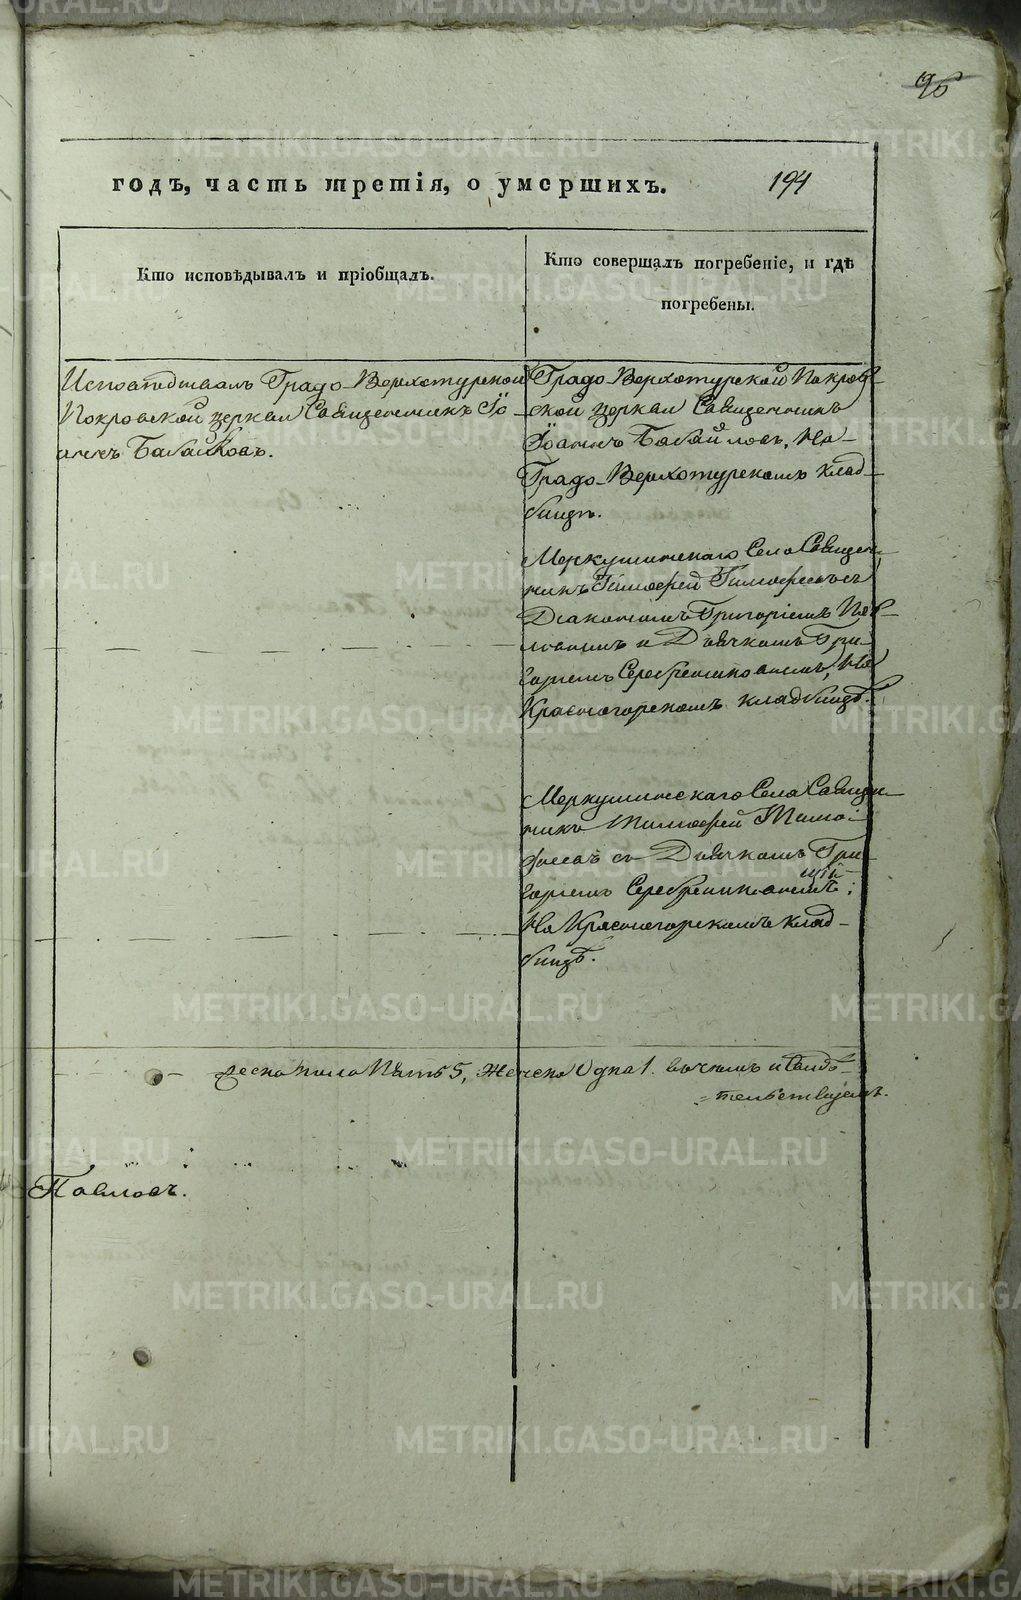 96
годъ, часть третія, о умершихъ. 194
Кто исповѣдывалъ и пріобщалъ.
Кто совершалъ погребеніе, и гдѣ
погребены.
Исповѣдывалъ Градо-Верхотурской
Покровской церкви Священникъ Іо-
аннъ Бабайловъ.
Градо-Верхотурской Покров-
ской церкви Священникъ
Іоаннъ Бабайловъ, На
Градо-Верхотурскомъ клад-
бищѣ.
Меркушинскаго Села Священ-
никъ Тимофей Тимофеевъ съ
Діакономъ Григоріемъ Пав-
ловымъ и Дьячкомъ Гри-
горіемъ Серебренниковымъ, На
Красногорскомъ кладбищѣ.
Меркушинскаго Села Священ-
никъ Тимофей Тимо-
феевъ съ Дьячкомъ Гри-
горіемъ Серебрениковымъ;
На Красногорскомъ клад-
бищѣ.
пола Пять 5, Женска Одна 1. въ чемъ и свидѣ-
тельствуемъ.
Павловъ.
METRIKI.GASO-URAL.RU